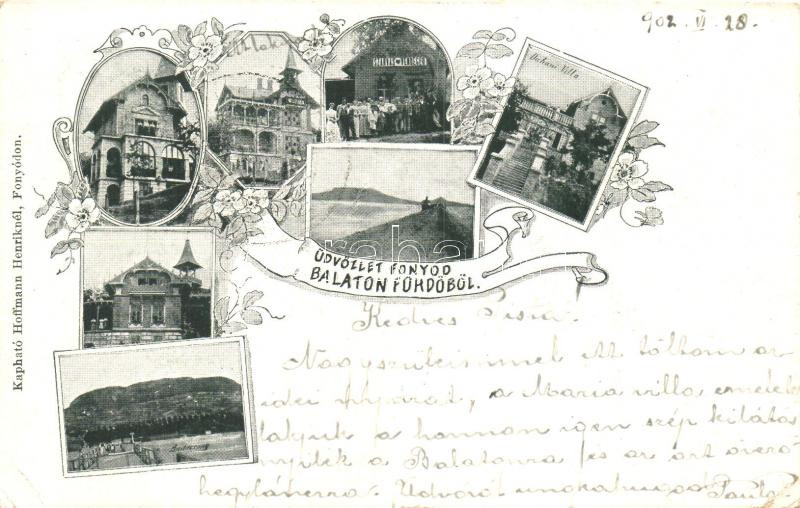 902. VI 28.
Kapható Hoffmann Henriknél, Fonyódon.
ÜDVÖZLET FONYOD
BALATON FÜRDÖBÖL.
Kedves Pista.
Nagyszüleimmel itt töltöm az
idei nyarat, a Mária villa emeletét
lakjuk a honnan igen szép kilátás
nyilik a Balatonra és az azt övező
hegylánczra. Üdvözöl unokahugod